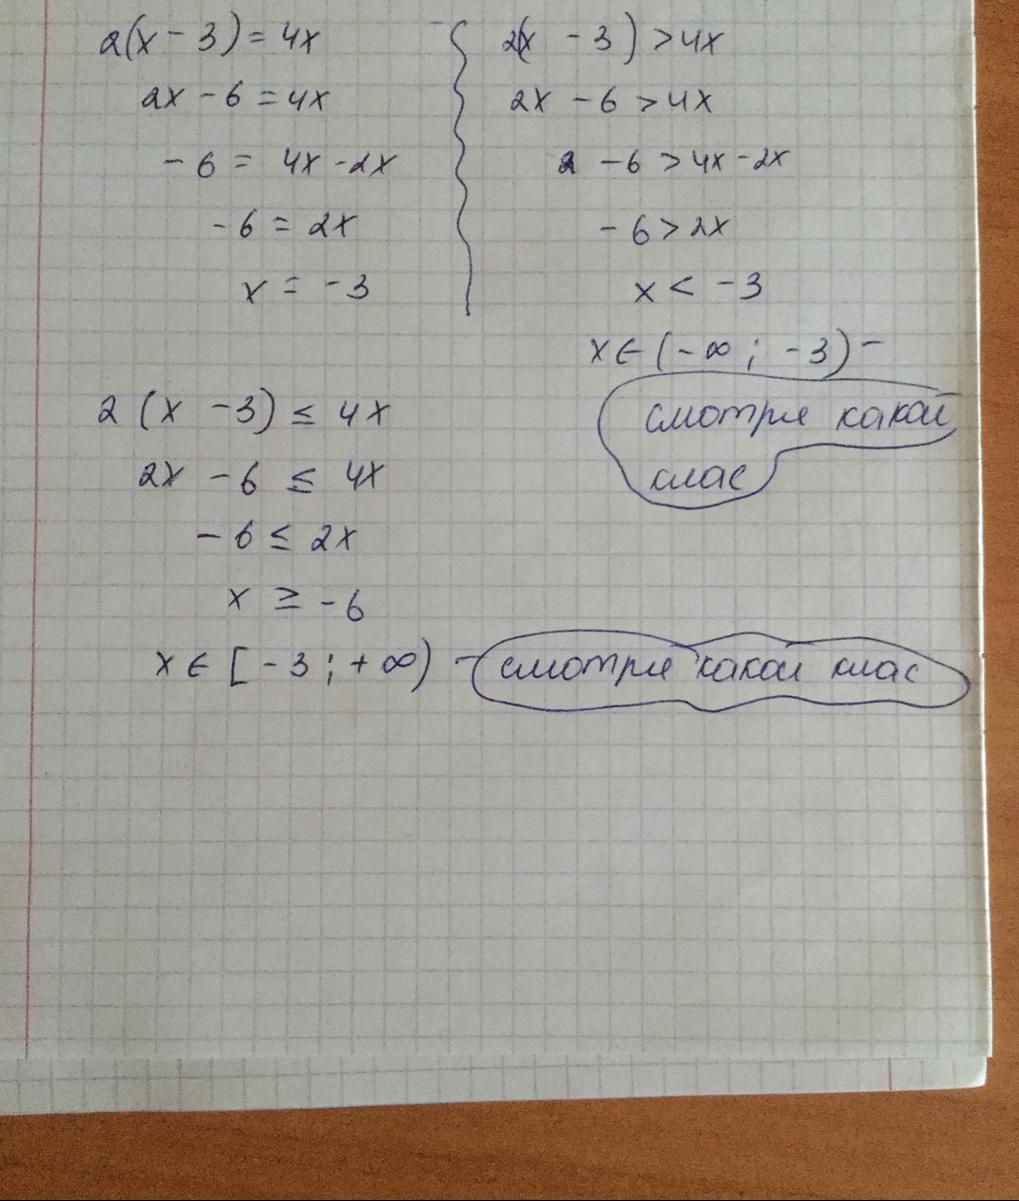 2(x - 3) = 4x
2x - 6 = 4x
- 6 = 4x - 2x
- 6 = 2x
x = -3
2(x - 3) > 4x
2x - 6 > 4x
- 6 > 4x - 2x
- 6 > 2x
x < -3
x ∈ (-∞ ; -3) -
смотря какой
клас
2 (x - 3) ≤ 4x
2x - 6 ≤ 4x
- 6 ≤ 2x
x ≥ -6
x ∈ [-3 ; +∞) - смотря какой клас